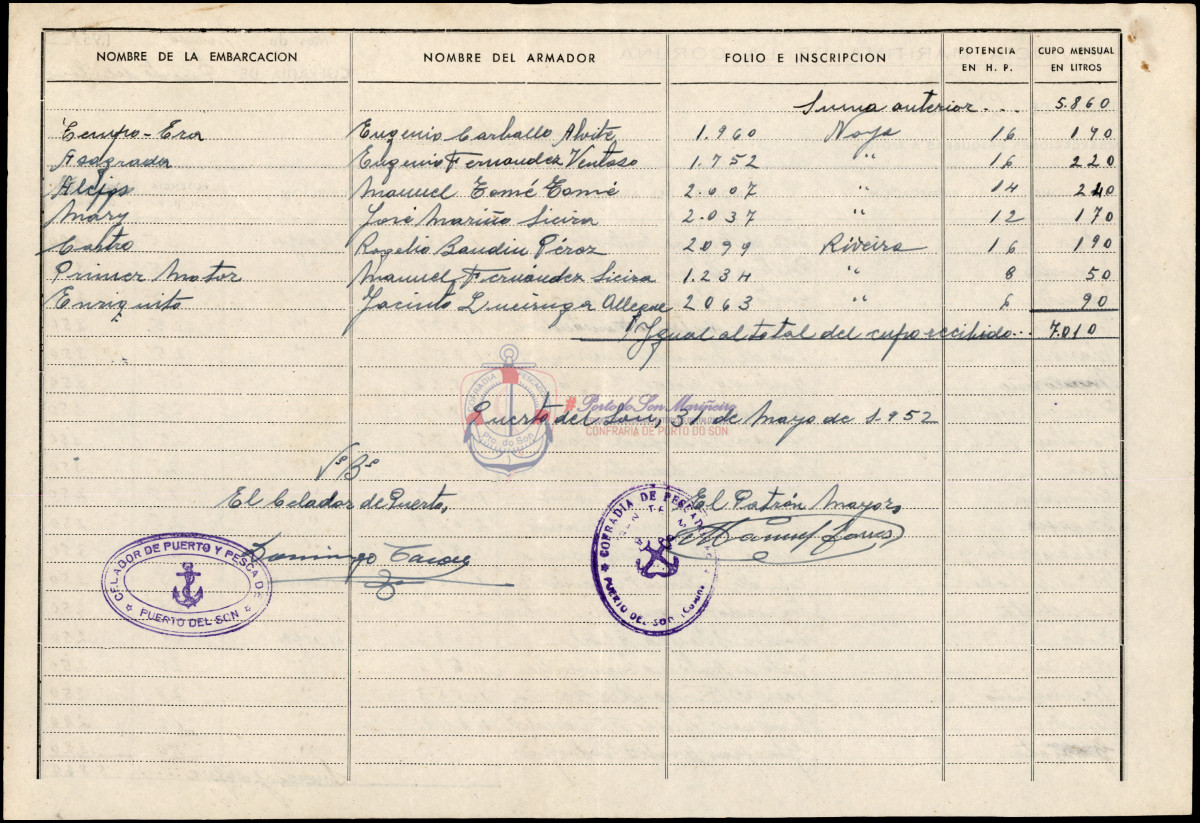 NOMBRE DE LA EMBARCACION NOMBRE DEL ARMADOR FOLIO E INSCRIPCION POTENCIA EN H. P. CUPO MENSUAL EN LITROS
Suma anterior... 5.860
Tempo-Era Eugenio Carballo Alvite 1.960 Noya 16 190
Asagrada Eugenio Fernandez Ventoso 1.752 " 16 220
Alejos Manuel Tomé Tomé 2.007 " 14 240
Mary José Mariño Sieira 2.037 " 12 170
Castro Rogelio Baudin Pérez 2099 Riveira 16 190
Primer Motor Manuel Fernández Sieira 1.234 " 8 50
Enriquito Jacinto 2063 " 6 90
Igual al total del cupo recibido... 7.010
Puerto del Son, 31 de Mayo de 1.952
#Porto do Son Mariñeiro
CONFRARIA DE PORTO DO SON
COFRADIA PESCADORES
Pto. do Son
Vº Bº
El Celador de Puerto, El Patrón Mayor,
Domingo Manuel
CELADOR DE PUERTO Y PESCA DE
PUERTO DEL SON
COFRADIA DE PESCADORES
PUERTO DEL SON (Coruña)